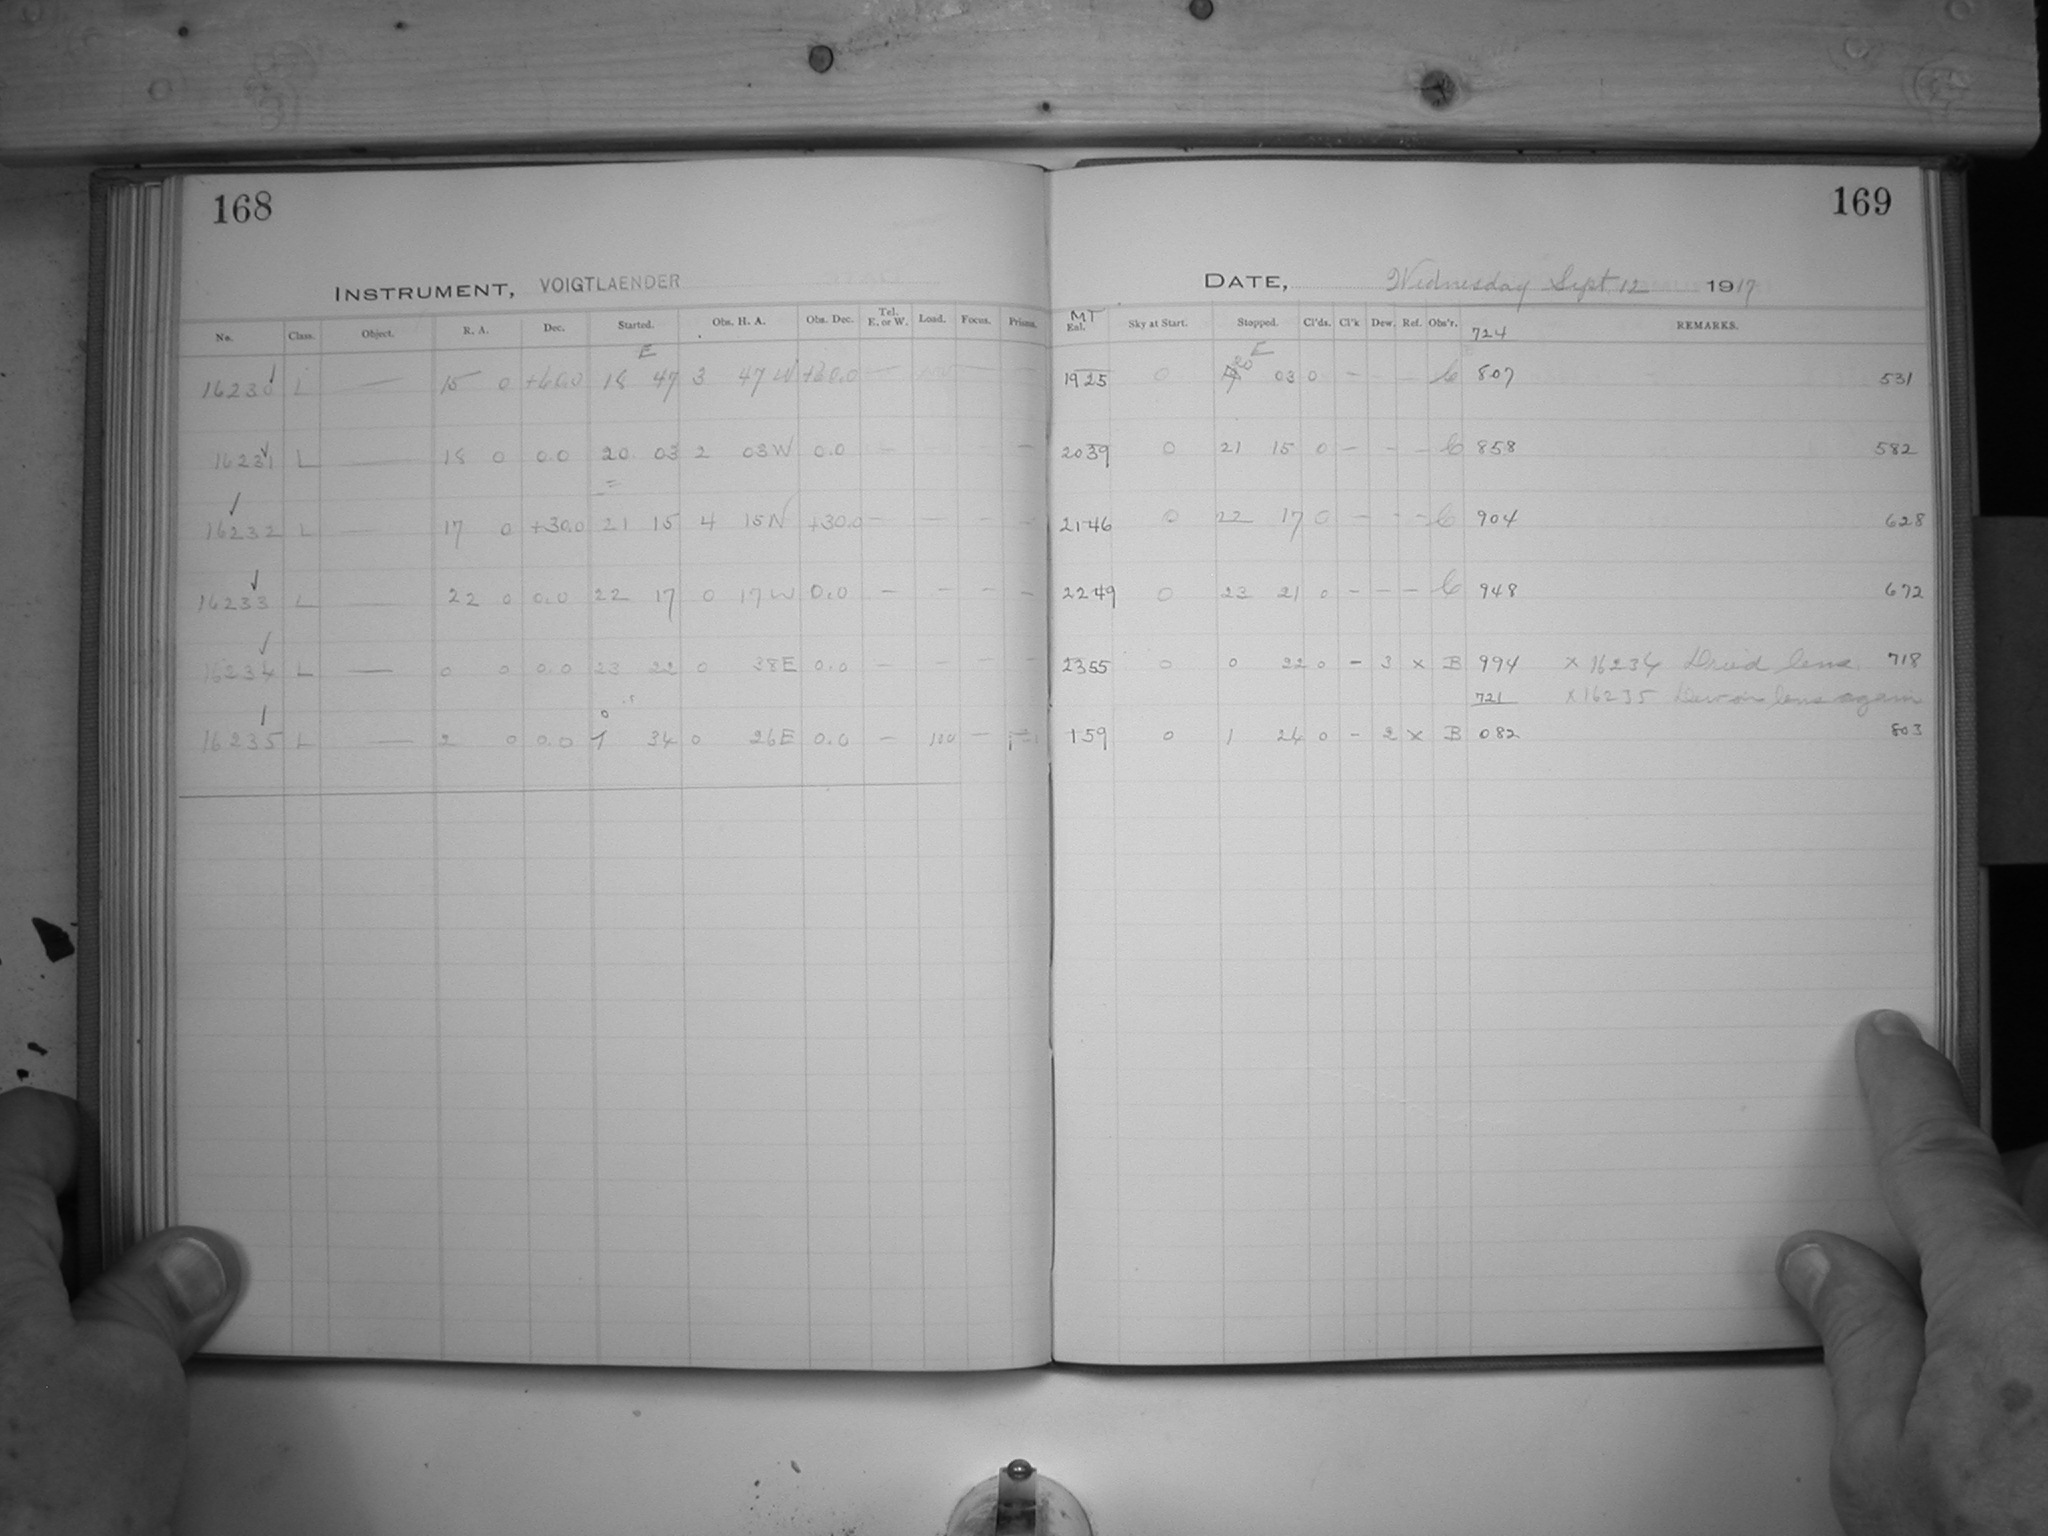 168
169
INSTRUMENT, VOIGTLAENDER
DATE, Wednesday Sept 12 1917
No. Class. Object. R. A. Dec. Started. Obs. H. A. Obs. Dec. Tel. E. or W. Load. Focus. Prisms.
MT Sky at Start. Stopped. Cl'ds. Cl'k Dew. Ref. Obs'r. 724 REMARKS.
E E
16230 L — 15 0 18 47 3 47 W — 1925 0 20 03 0 — 807 531
16231 L — 18 0 0.0 20 03 2 03 W 0.0 — 2039 0 21 15 0 — — — C 858 582
16232 L — 17 0 +30.0 21 15 4 15 +30.0 — — — — 2146 0 22 17 0 — — — C 904 628
16233 L — 22 0 0.0 22 17 0 17 W 0.0 — — — — 2249 0 23 21 0 — — — C 948 672
16234 L — 0 0 0.0 23 22 0 38 E 0.0 — — — — 2355 0 0 22 0 — 3 x B 994 x 16234 Dried lens. 718
721 x 16235 Dew on lens again
0
16235 L — 2 0 0.0 34 0 26 E 0.0 — 100 — 159 0 1 24 0 — 2 x B 082 803